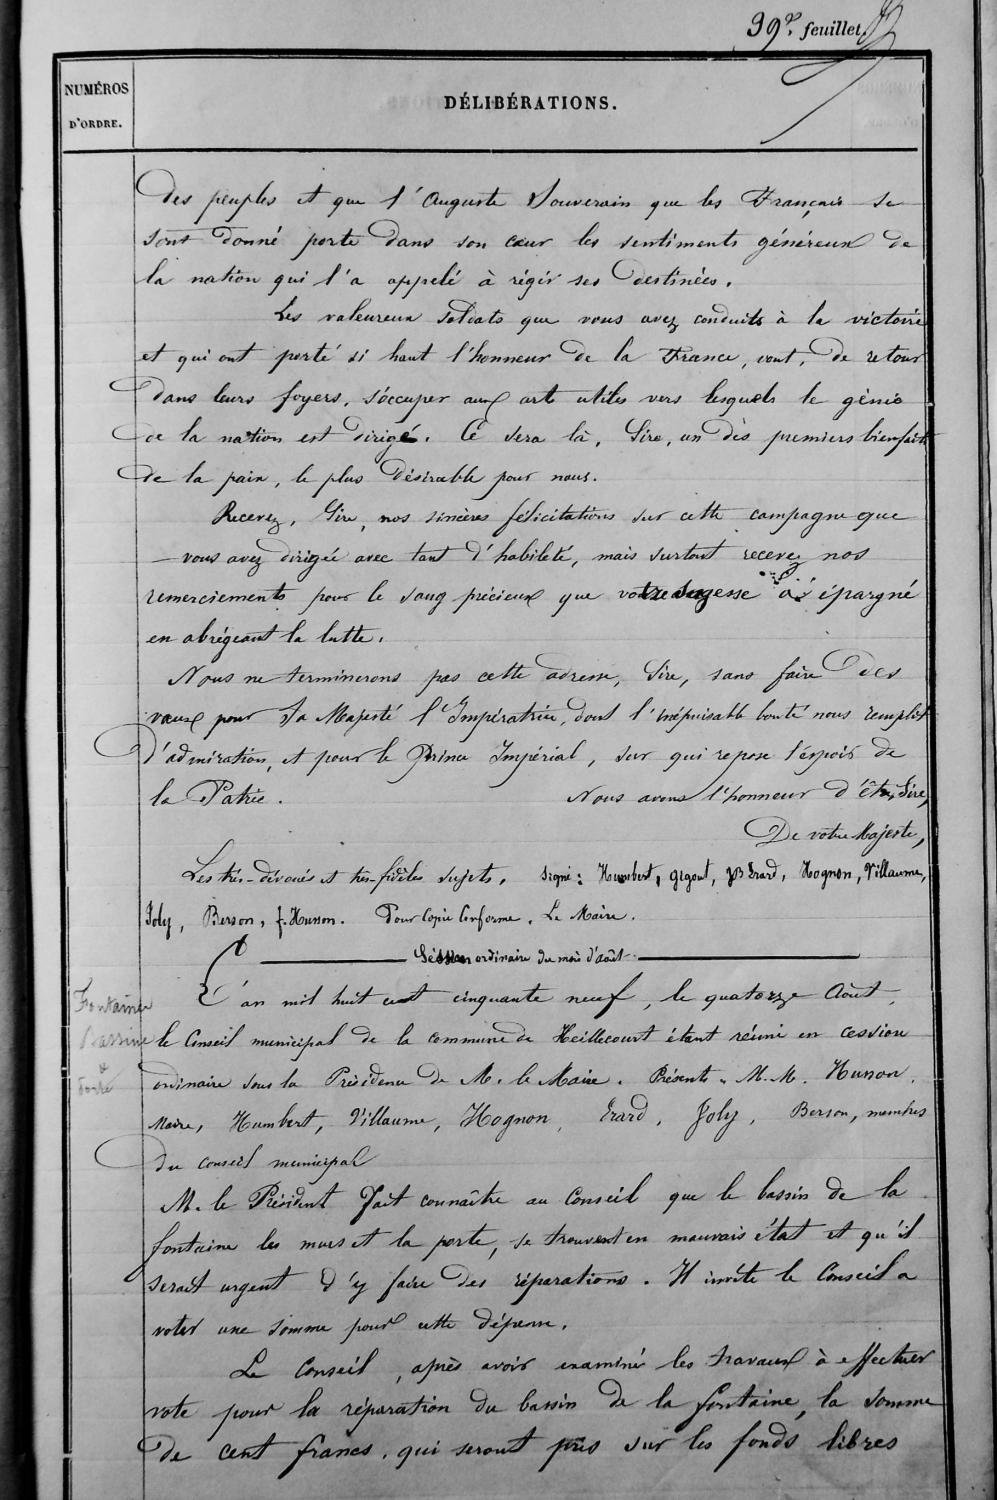 39e. feuillet.
NUMÉROS
D'ORDRE.
DÉLIBÉRATIONS.
des peuples et que l'Auguste Souverain que les Français se
sont donné porte dans son cœur les sentiments généreux de
la nation qui l'a appelé à régir ses destinées.
Les valeureux soldats que vous avez conduits à la victoire
et qui ont porté si haut l'honneur de la France, vont, de retour
dans leurs foyers, s'occuper aux arts utiles vers lesquels le génie
de la nation est dirigé. Ce sera là, Sire, un des premiers bienfaits
de la paix, le plus désirable pour nous.
Recevez, Sire, nos sincères félicitations sur cette campagne que
vous avez dirigée avec tant d'habileté, mais surtout recevez nos
remerciements pour le sang précieux que votre sagesse a épargné
en abrégeant la lutte.
Nous ne terminerons pas cette adresse, Sire, sans faire des
vœux pour Sa Majesté l'Impératrice, dont l'inépuisable bonté nous remplit
d'admiration, et pour le Prince Impérial, sur qui repose l'espoir de
la Patrie. Nous avons l'honneur d'être, Sire,
De votre Majesté,
Les très-dévoués et très-fidèles sujets. Signé : Humbert, Gigout, JB Erard, Hognon, Villaume,
Joly, Berson, f. Husson. Pour Copie Conforme, Le Maire.
Session ordinaire du mois d'août
Fontaine
Bassin
&
Porte
L'an mil huit cent cinquante neuf, le quatorze Août,
le Conseil municipal de la commune de Heillecourt étant réuni en cession
ordinaire sous la Présidence de M. le Maire. Présents. M.M. Husson,
Maire, Humbert, Villaume, Hognon, Erard, Joly, Berson, membres
du conseil municipal
M. le Président fait connaître au Conseil que le bassin de la
fontaine les murs et la porte, se trouvent en mauvais état et qu'il
serait urgent d'y faire des réparations. Il invite le Conseil a
voter une somme pour cette dépense.
Le Conseil, après avoir examiné les travaux à effectuer
vote pour la réparation du bassin de la fontaine, la somme
de cent francs. qui seront pris sur les fonds libres